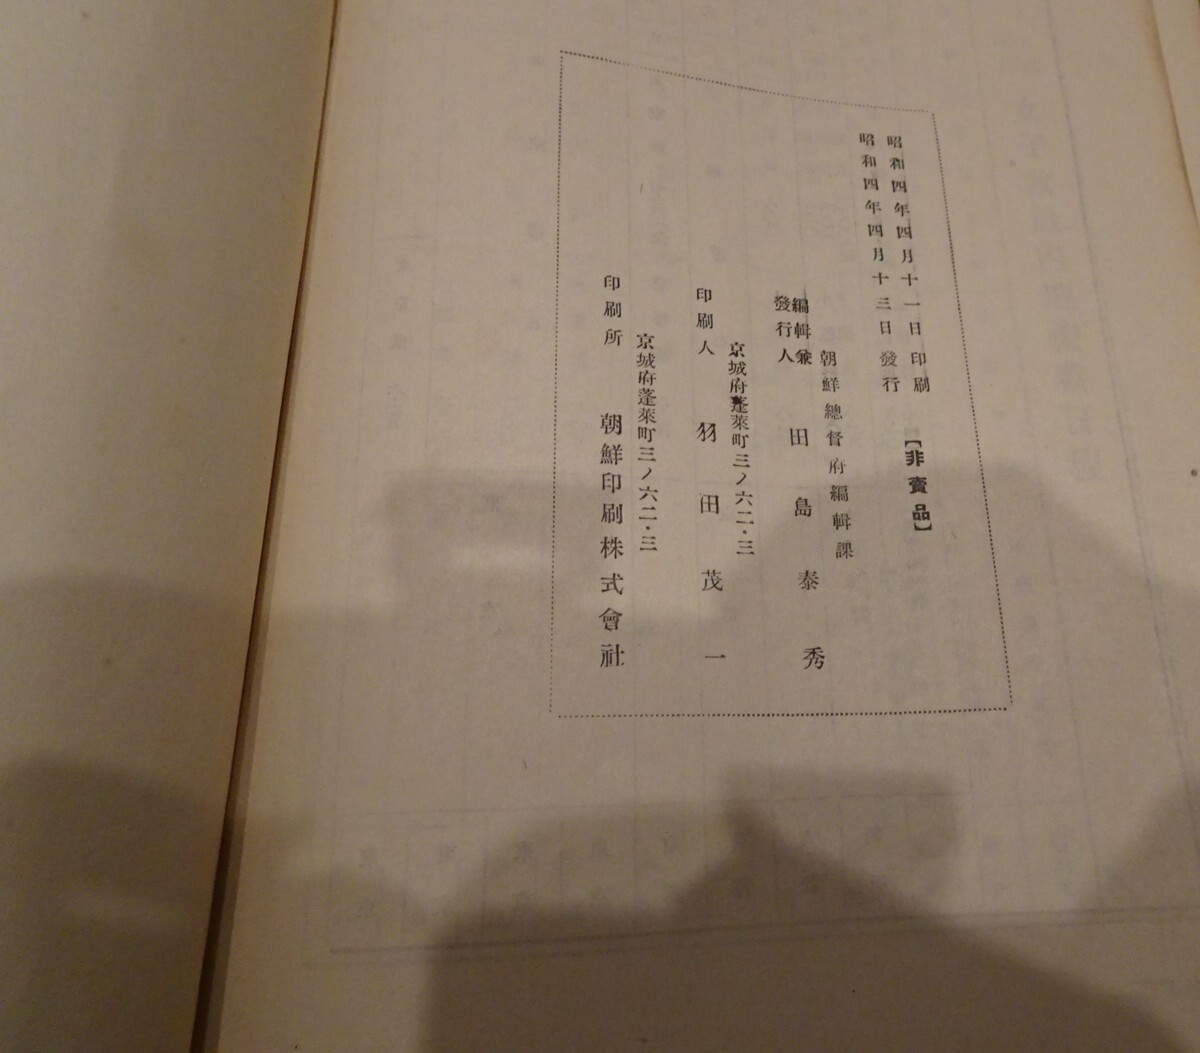 昭和四年四月十一日印刷
昭和四年四月十三日發行
【非賣品】
朝鮮總督府編輯課
編輯兼
發行人
田島泰秀
京城府蓬萊町三ノ六二・三
印刷人 羽田茂一
京城府蓬萊町三ノ六二・三
印刷所 朝鮮印刷株式會社